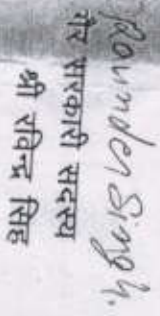 Rounder Singh.
गैर सरकारी सदस्य
श्री रविन्द्र सिंह